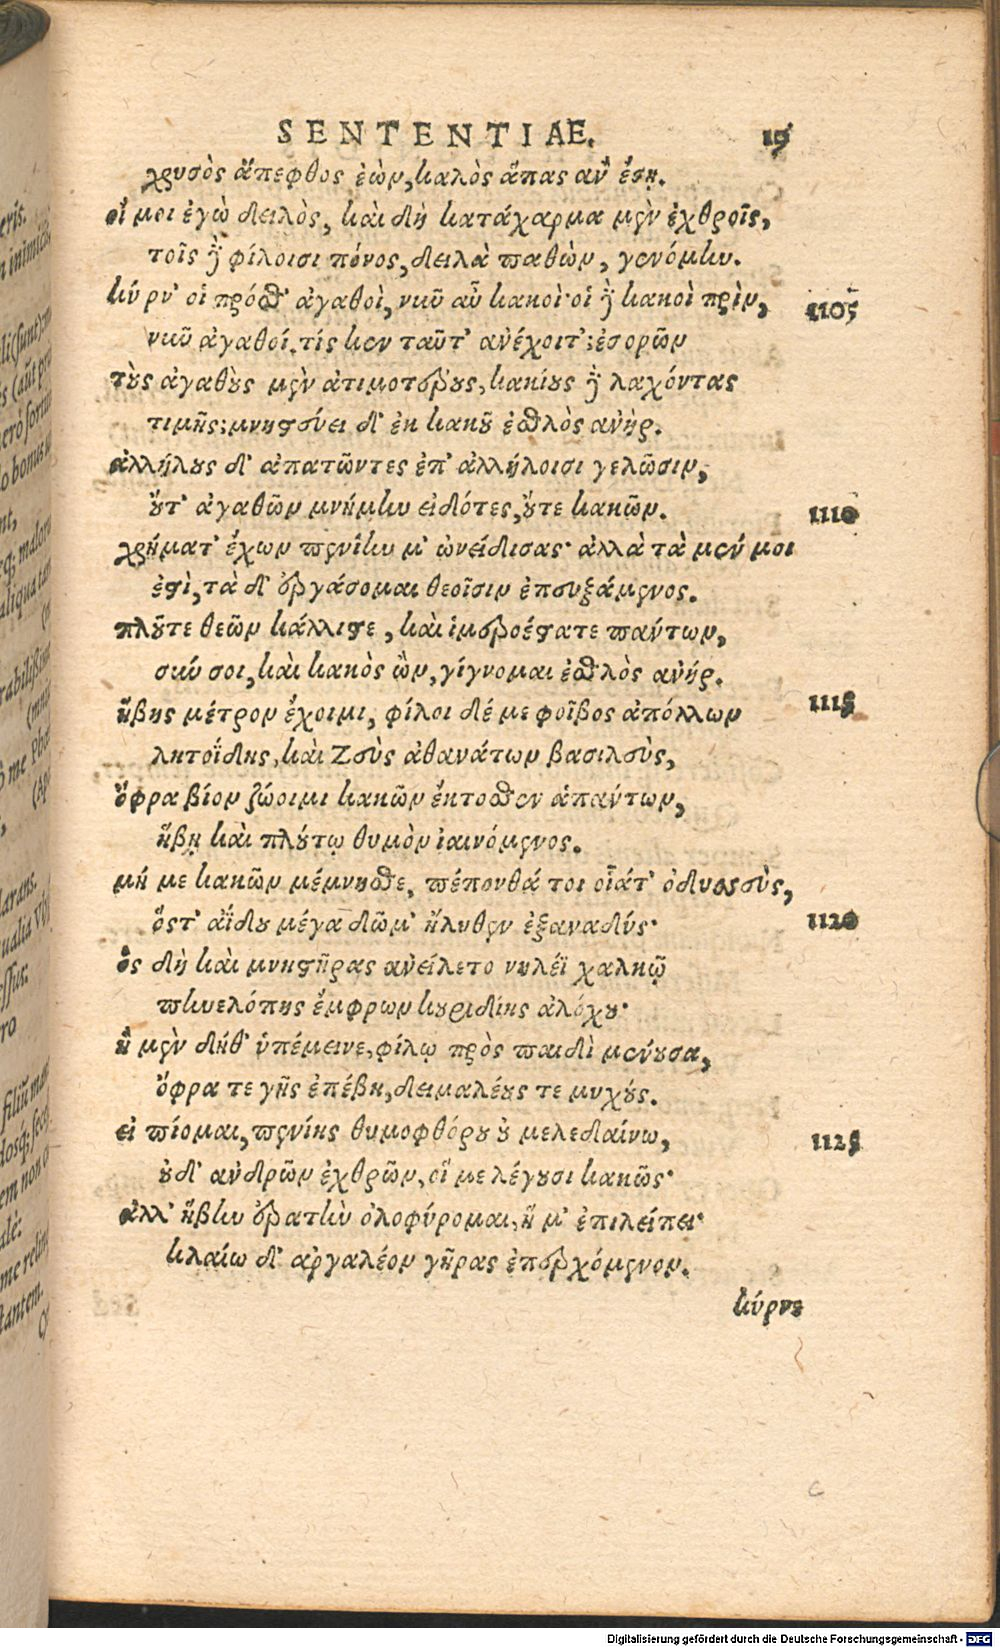 SENTENTIAE. 19
χρυσὸς ἄπεφθος ἐὼν, καλὸς ἅπας ἀνὴ ἔσῃ.
οἴ μοι ἐγὼ δειλὸς, καὶ δὴ κατάχαρμα μὲν ἐχθροῖς,
τοῖς δὲ φίλοισι πόνος, δειλὰ παθὼν, γενόμην.
κύρν' οἱ πρόσθ' ἀγαθοὶ, νῦν αὖ κακοὶ· οἱ δὲ κακοὶ πρὶν, 1105
νῦν ἀγαθοί. τίς κεν ταῦτ' ἀνέχοιτ'; ἐσορῶν
τοὺς ἀγαθοὺς μὲν ἀτιμοτέρους, κακίους δὲ λαχόντας
τιμῆς; μνηστύει δ' ἐκ κακοῦ ἐσθλὸς ἀνήρ.
ἀλλήλους δ' ἀπατῶντες ἐπ' ἀλλήλοισι γελῶσιν,
οὔτ' ἀγαθῶν μνήμην εἰδότες, οὔτε κακῶν. 1110
χρήματ' ἔχων πενίην μ' ὠνείδισας· ἀλλὰ τὰ μέν μοι
ἐστὶ, τὰ δ' ἐργάσομαι θεοῖσιν ἐπευξάμενος.
πλοῦτε θεῶν κάλλιστε, καὶ ἱμεροέστατε πάντων,
σὺν σοι, καὶ κακὸς ὢν, γίγνομαι ἐσθλὸς ἀνήρ.
ἥβης μέτρον ἔχοιμι, φίλοι δέ με φοῖβος ἀπόλλων 1115
λητοΐδης, καὶ Ζεὺς ἀθανάτων βασιλεὺς,
ὄφρα βίον ζώοιμι κακῶν ἔκτοσθεν ἁπάντων,
ἥβῃ καὶ πλούτῳ θυμὸν ἰαινόμενος.
μή με κακῶν μέμνησθε, πέπονθά τοι οἷάτ' ὀδυσσεὺς,
ὅστ' ἀΐδου μέγα δῶμ' ἤλυθεν ἐξαναδύς· 1120
ὃς δὴ καὶ μνηστῆρας ἀνείλετο νηλέϊ χαλκῷ
πηνελόπης ἔμφρων κουριδίης ἀλόχου·
ἣ μὲν δήθ' ὑπέμεινε, φίλῳ πρὸς παιδὶ μένουσα,
ὄφρα τε γῆς ἐπέβη, δειμαλέους τε μυχούς.
εἰ πίομαι, πενίης θυμοφθόρου οὐ μελεδαίνω, 1125
οὐδ' ἀνδρῶν ἐχθρῶν, οἵ με λέγουσι κακῶς·
ἀλλ' ἥβην ἐρατὴν ὀλοφύρομαι, ἥ μ' ἐπιλείπει·
κλαίω δ' ἀργαλέον γῆρας ἐπερχόμενον.
κύρνε
Digitalisierung gefördert durch die Deutsche Forschungsgemeinschaft - DFG